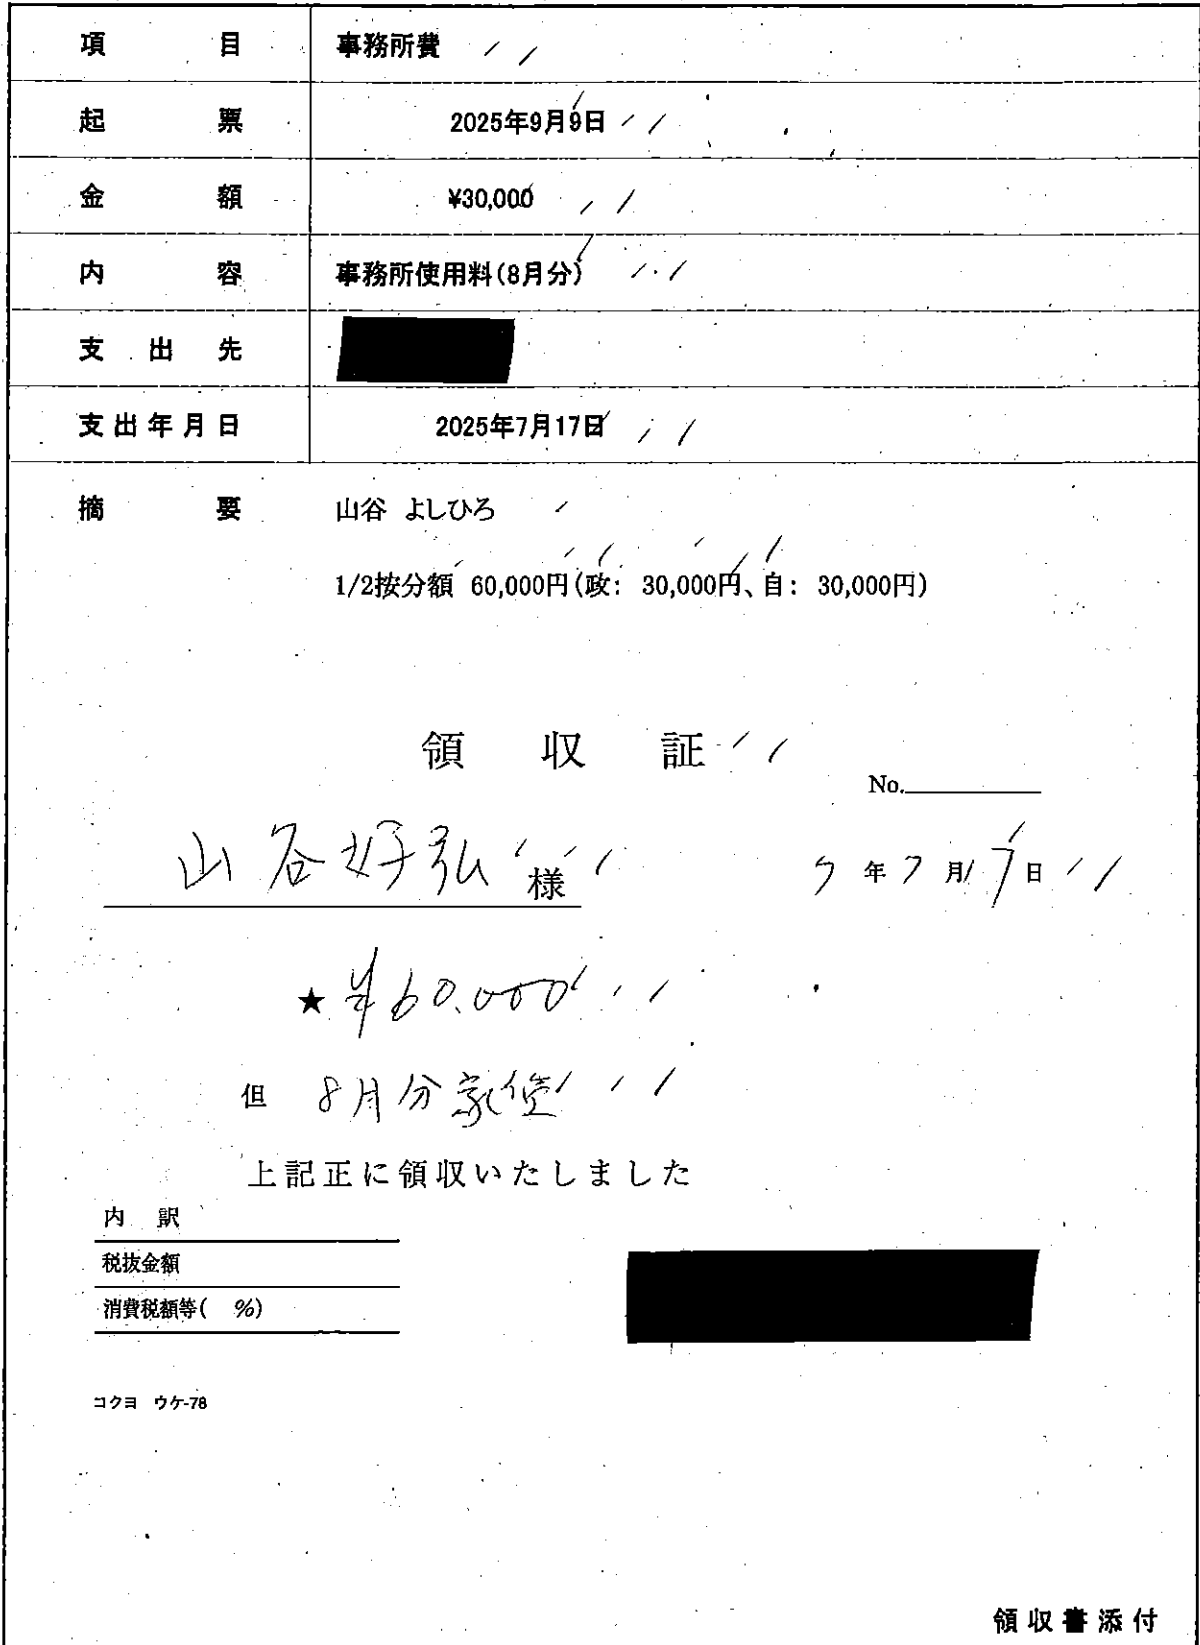 項目 事務所費
起票 2025年9月9日
金額 ¥30,000
内容 事務所使用料(8月分)
支出先
支出年月日 2025年7月17日
摘要 山谷 よしひろ
1/2按分額 60,000円(政: 30,000円、自: 30,000円)
領収証
No.
山谷好弘 様 7年7月17日
★ ¥60,000
但 8月分家賃
上記正に領収いたしました
内訳
税抜金額
消費税額等( %)
コクヨ ウケ-78
領収書添付